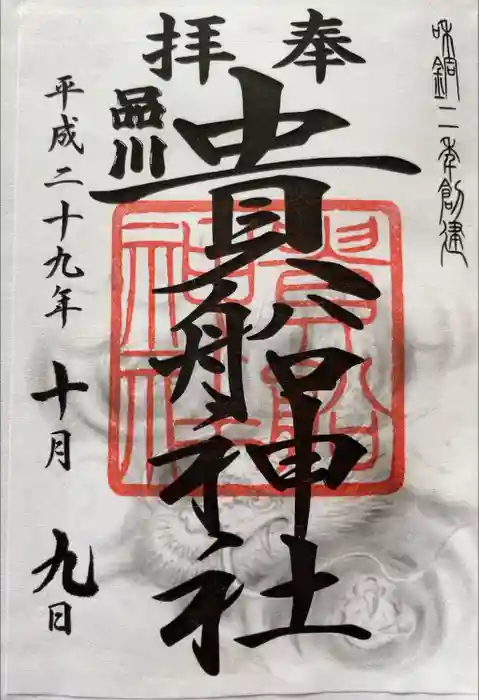 和銅二年創建
奉拝
品川
貴船神社
貴船
神社
平成二十九年 十月 九日